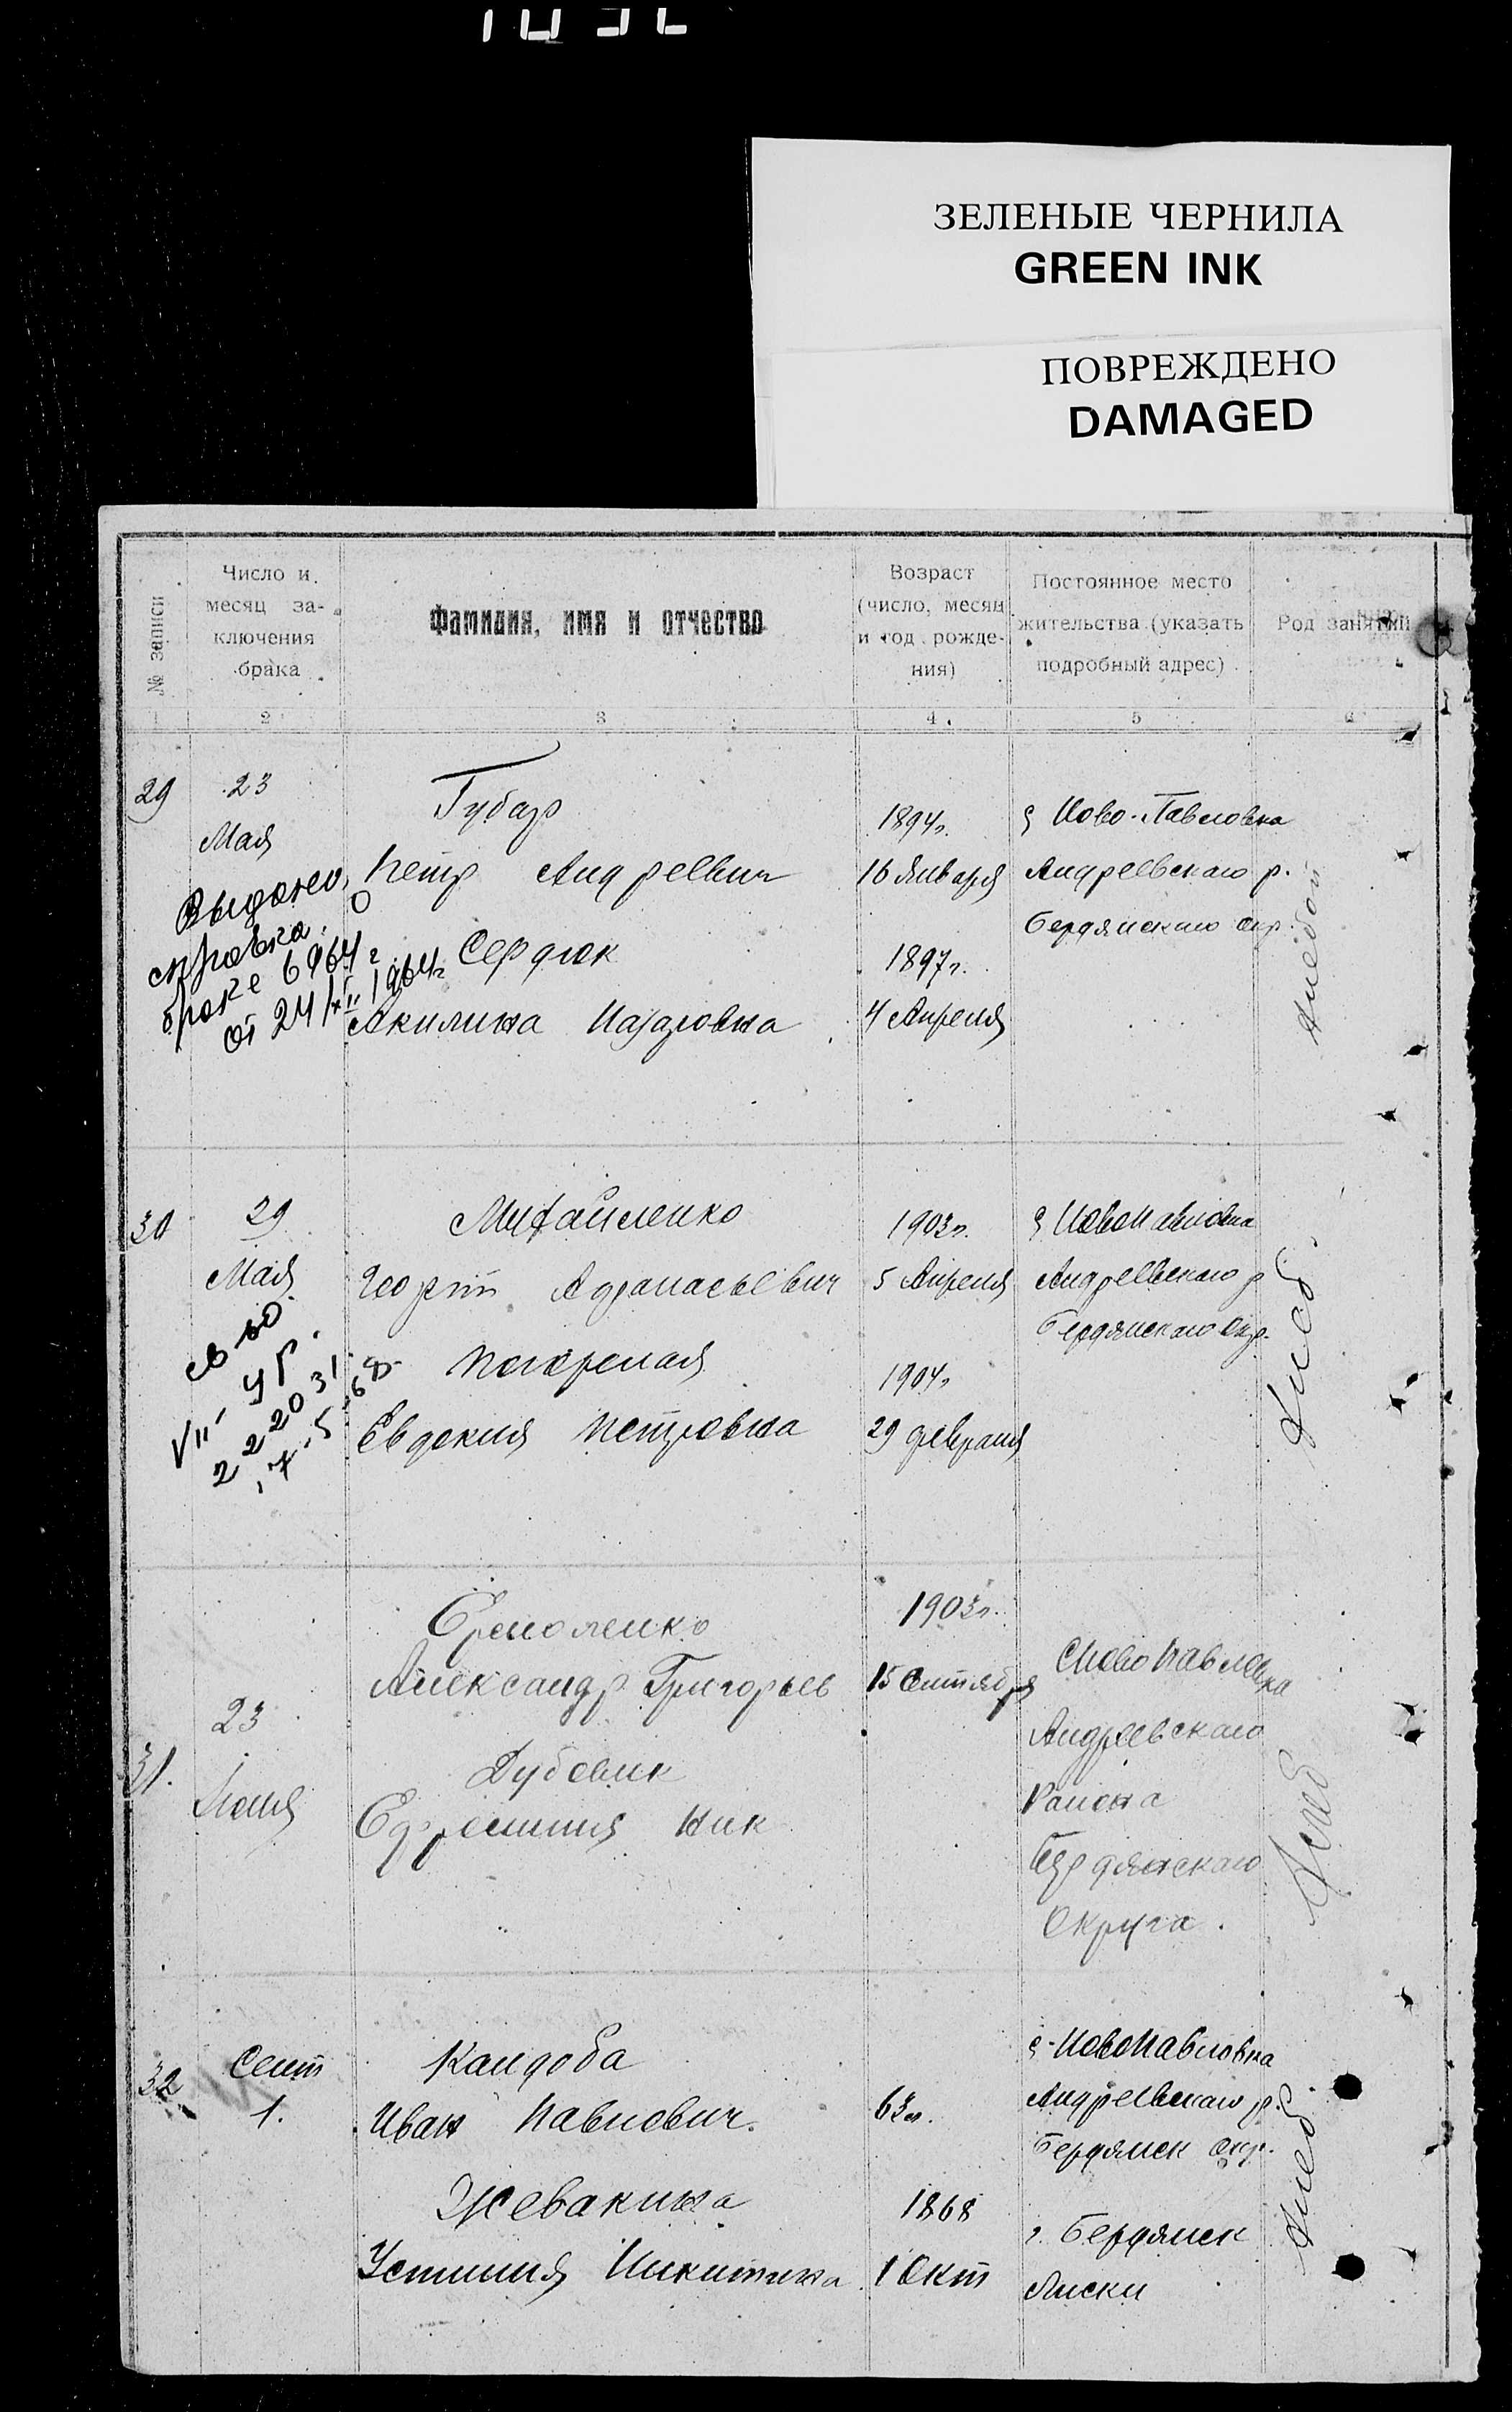 ЗЕЛЕНЫЕ ЧЕРНИЛА
GREEN INK
ПОВРЕЖДЕНО
DAMAGED
№ записи
Число и
месяц за-
ключения
брака
Фамилия, имя и отчество
Возраст
(число, месяц
и год рожде-
ния)
Постоянное место
жительства (указать
подробный адрес)
Род занятий
2
3
4
5
6
29
23
Мая
Выдано
справка о
браке 6964 г
от 24/XII 1964г
Губарь
Петр Андреевич
Сердюк
Акилина Назаровна
1894г.
16 Января
1897г.
4 Апреля
с Ново-Павловка
Андреевского р.
Бердянского окр.
30
29
Мая
св-во
VII-УР
222031
7-5-68
Михайленко
Георгий Афанасьевич
Погорелая
Евдокия Петровна
1903г.
5 Апреля
1904г
29 февраля
с Новопавловка
Андреевского р
Бердянского окр.
Хлеб.
31.
23
Июня
Ермоленко
Александр Григорьев
Дубовик
Ефросиния Ник
1903г.
15 Сентября
с Новопавловка
Андреевского
Района
Бердянского
Округа.
Хлеб
32
Сент
1.
Кандоба
Иван Павлович.
Жевакина
Устиния Никитична
63г.
1868
1 Окт
с-Новопавловка
Андреевского р.
Бердянск окр.
г. Бердянск
Лиски
Хлеб